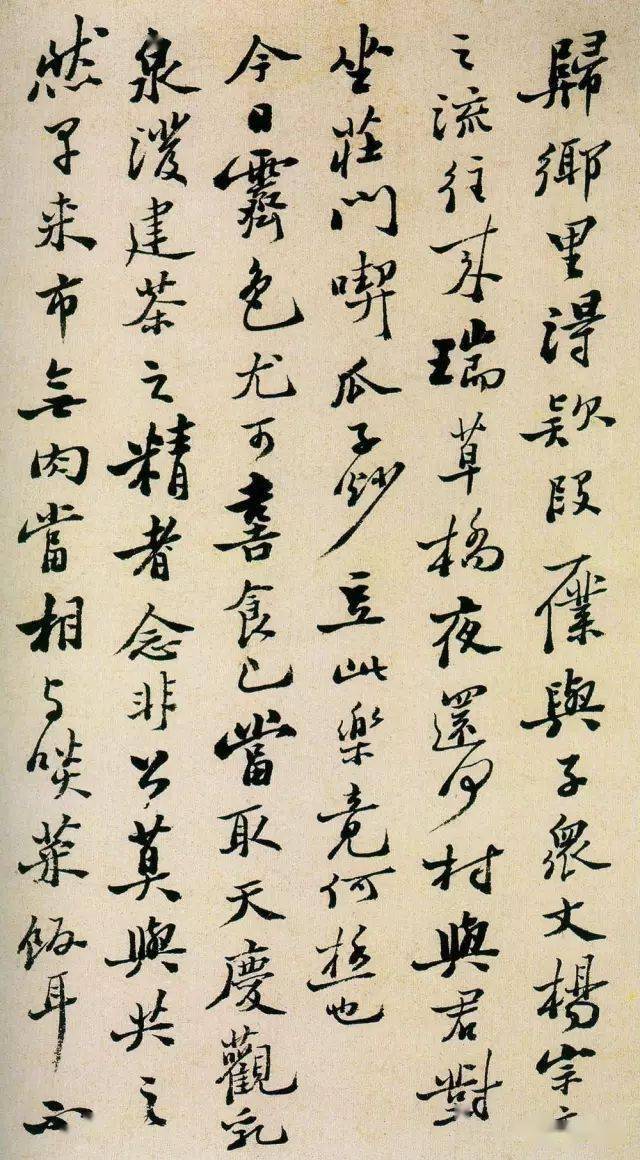 歸鄉里得款段一僕與子眾丈楊宗
之流往來瑞草橋夜還何村與君對
坐莊門喫瓜子炒豆此樂竟何極也
今日霽色尤可喜食已當取天慶觀乳
泉潑建茶之精者念非公莫與共之
然早来市無肉當相与啖菜飯耳不